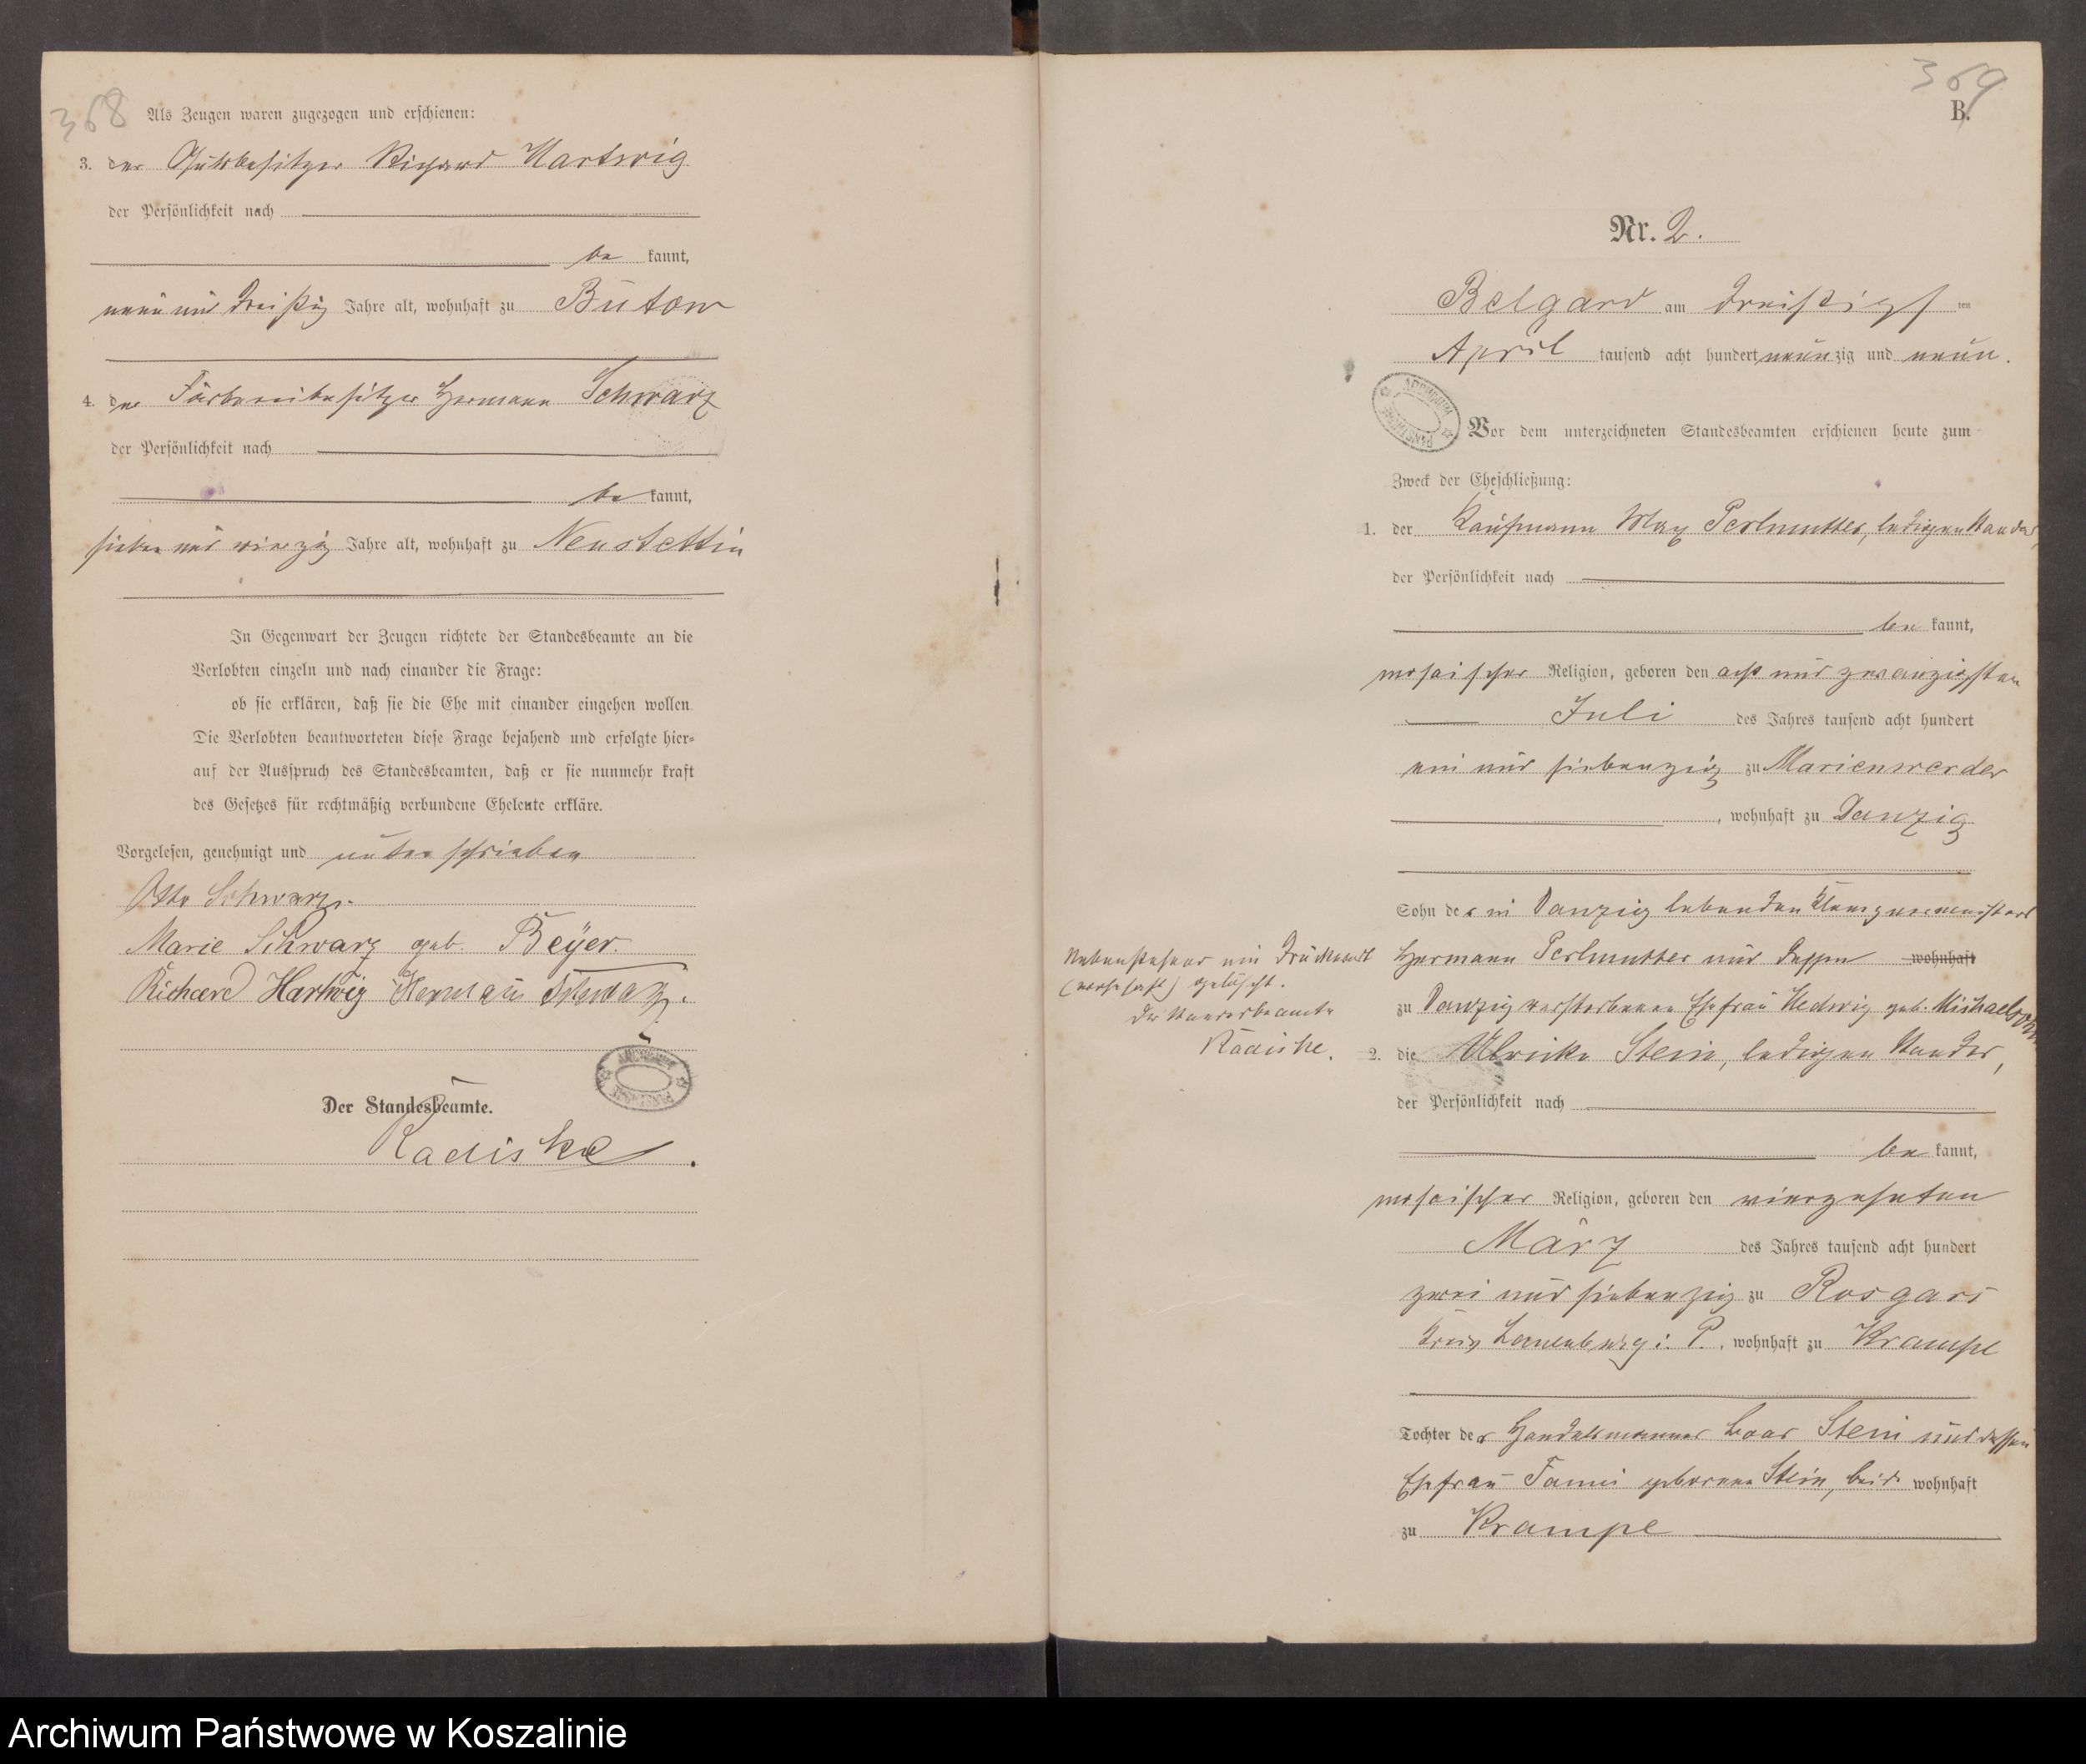 368
Als Zeugen waren zugezogen und erschienen:
3. der Gutsbesitzer Richard Hartwig
der Persönlichkeit nach
be kannt,
neun und dreißig Jahre alt, wohnhaft zu Bütow
4. der Färbereibesitzer Hermann Schwarz
der Persönlichkeit nach
be kannt,
sieben und vierzig Jahre alt, wohnhaft zu Neustettin
In Gegenwart der Zeugen richtete der Standesbeamte an die
Verlobten einzeln und nach einander die Frage:
ob sie erklären, daß sie die Ehe mit einander eingehen wollen.
Die Verlobten beantworteten diese Frage bejahend und erfolgte hier-
auf der Ausspruch des Standesbeamten, daß er sie nunmehr kraft
des Gesetzes für rechtmäßig verbundene Eheleute erkläre.
Vorgelesen, genehmigt und unterschrieben
Otto Schwarz.
Marie Schwarz geb. Beyer.
Richard Hartwig Hermann Schwarz.
ARCHIWUM PAŃSTWOWE
Der Standesbeamte.
Radiske.
369
B.
Nr. 2.
Belgard am dreißigsten
April tausend acht hundert neunzig und neun.
ARCHIWUM PAŃSTWOWE
Vor dem unterzeichneten Standesbeamten erschienen heute zum
Zweck der Eheschließung:
1. der Kaufmann Max Perlmutter, ledigen Standes,
der Persönlichkeit nach
be kannt,
mosaischer Religion, geboren den acht und zwanzigsten
Juli des Jahres tausend acht hundert
ein und siebenzig zu Marienwerder
, wohnhaft zu Danzig
Sohn des in Danzig lebenden Klempnermeisters
Hermann Perlmutter und dessen wohnhaft
zu Danzig verstorbenen Ehefrau Hedwig geb. Michaelsohn
Nebenstehend ein Druckwort
(wohnhaft) gelöscht.
Der Standesbeamte
Radiske.
2. die Ulricke Stein, ledigen Standes,
der Persönlichkeit nach
be kannt,
mosaischer Religion, geboren den vierzehnten
März des Jahres tausend acht hundert
zwei und siebenzig zu Rosgars
Kreis Lauenburg i. P., wohnhaft zu Krampe
Tochter des Handelsmannes Baer Stein und dessen
Ehefrau Fanni geborene Stein, beide wohnhaft
zu Krampe
Archiwum Państwowe w Koszalinie